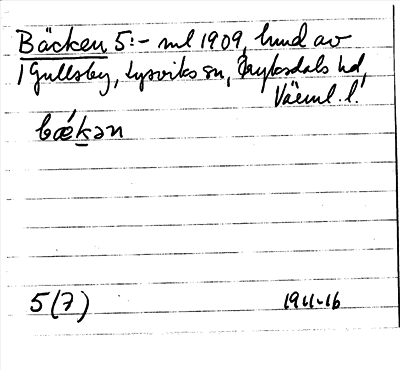 Bäcken 5:- ml 1909, hmd av
1 Gullsby, Lysviks sn, Fryksdals hd,
Värml. l.
bǽkən
5(7) 1911-16